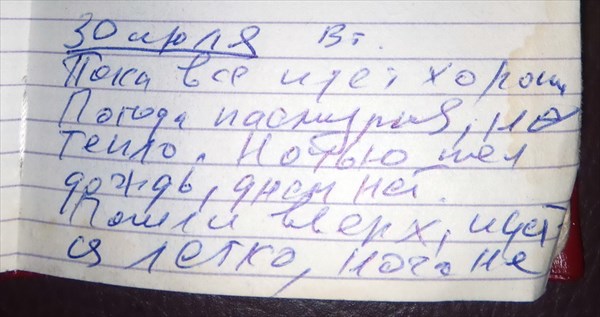 30 июля Вт.
Пока все идет хорошо
Погода пасмурная, но
тепло. Ночью шел
дождь, днем нет.
Пошли вверх, идет
ся легко, пока не